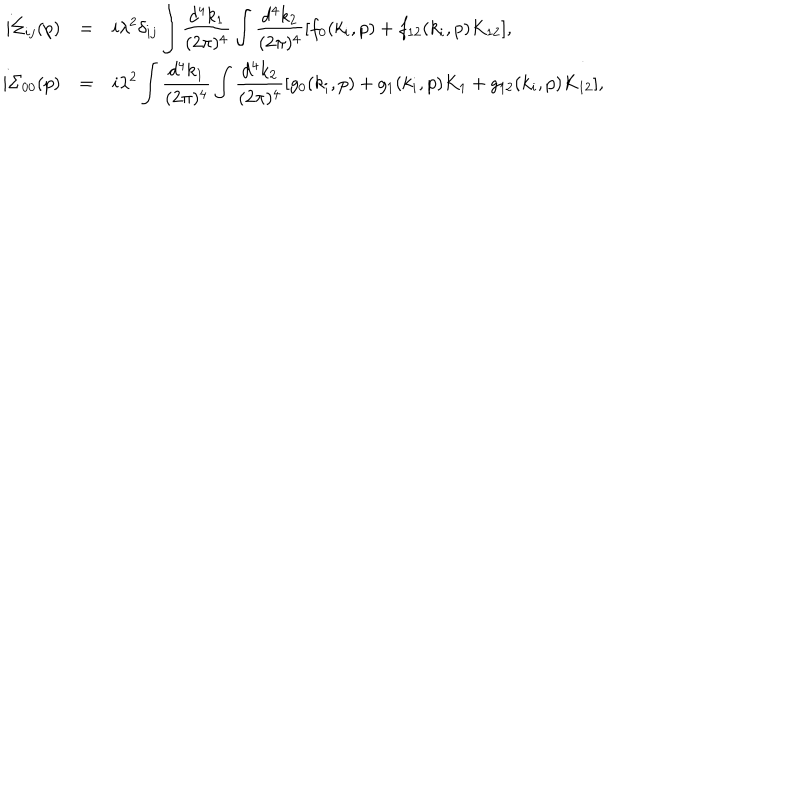 iΣ_{ij}(p) = iλ^2 δ_{ij} ∫ \frac{d^4k_1}{(2π)^4} ∫ \frac{d^4k_2}{(2π)^4} [f_0(k_i, p) + f_{12}(k_i, p)K_{12}],
iΣ_{00}(p) = iλ^2 ∫ \frac{d^4k_1}{(2π)^4} ∫ \frac{d^4k_2}{(2π)^4} [g_0(k_i, p) + g_1(k_i, p)K_1 + g_{12}(k_i, p)K_{12}],